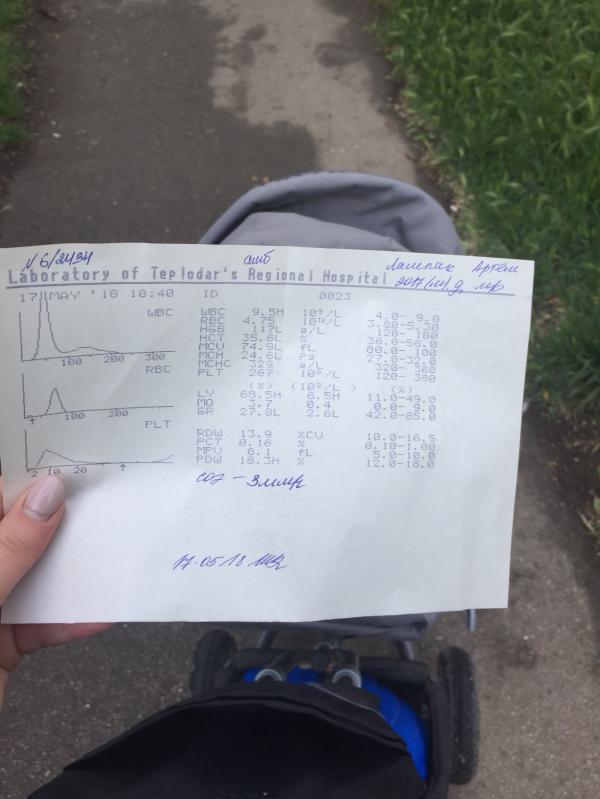 N 6/2434 амб Артём
Laboratory of Teplodar's Regional Hospital 2017(М) г.
17 MAY '18 10:40 ID 0023
WBC WBC 9.5H 10⁹/L 4.0- 9.0
RBC 4.75 10¹²/L 3.80-5.30
HGB 117L g/L 120- 180
HCT 35.6L % 36.0-56.0
MCV 74.9L fL 80.0- 100
100 200 300 MCH 24.6L pg 27.0-32.0
RBC MCHC 329 g/L 320- 360
PLT 267 10⁹/L 120- 380
(%) (10⁹/L ) (%)
LY 68.5H 6.5H 11.0-49.0
MO 3.7 0.4 0.0- 9.0
100 200 GR 27.8L 2.6L 42.0-85.0
PLT
RDW 13.9 %CV 10.0-16.5
PCT 0.16 % 0.10-1.00
MPV 6.1 fL 5.0-10.0
2 10 20 PDW 18.3H % 12.0-18.0
соэ - 3мм
17.05.18